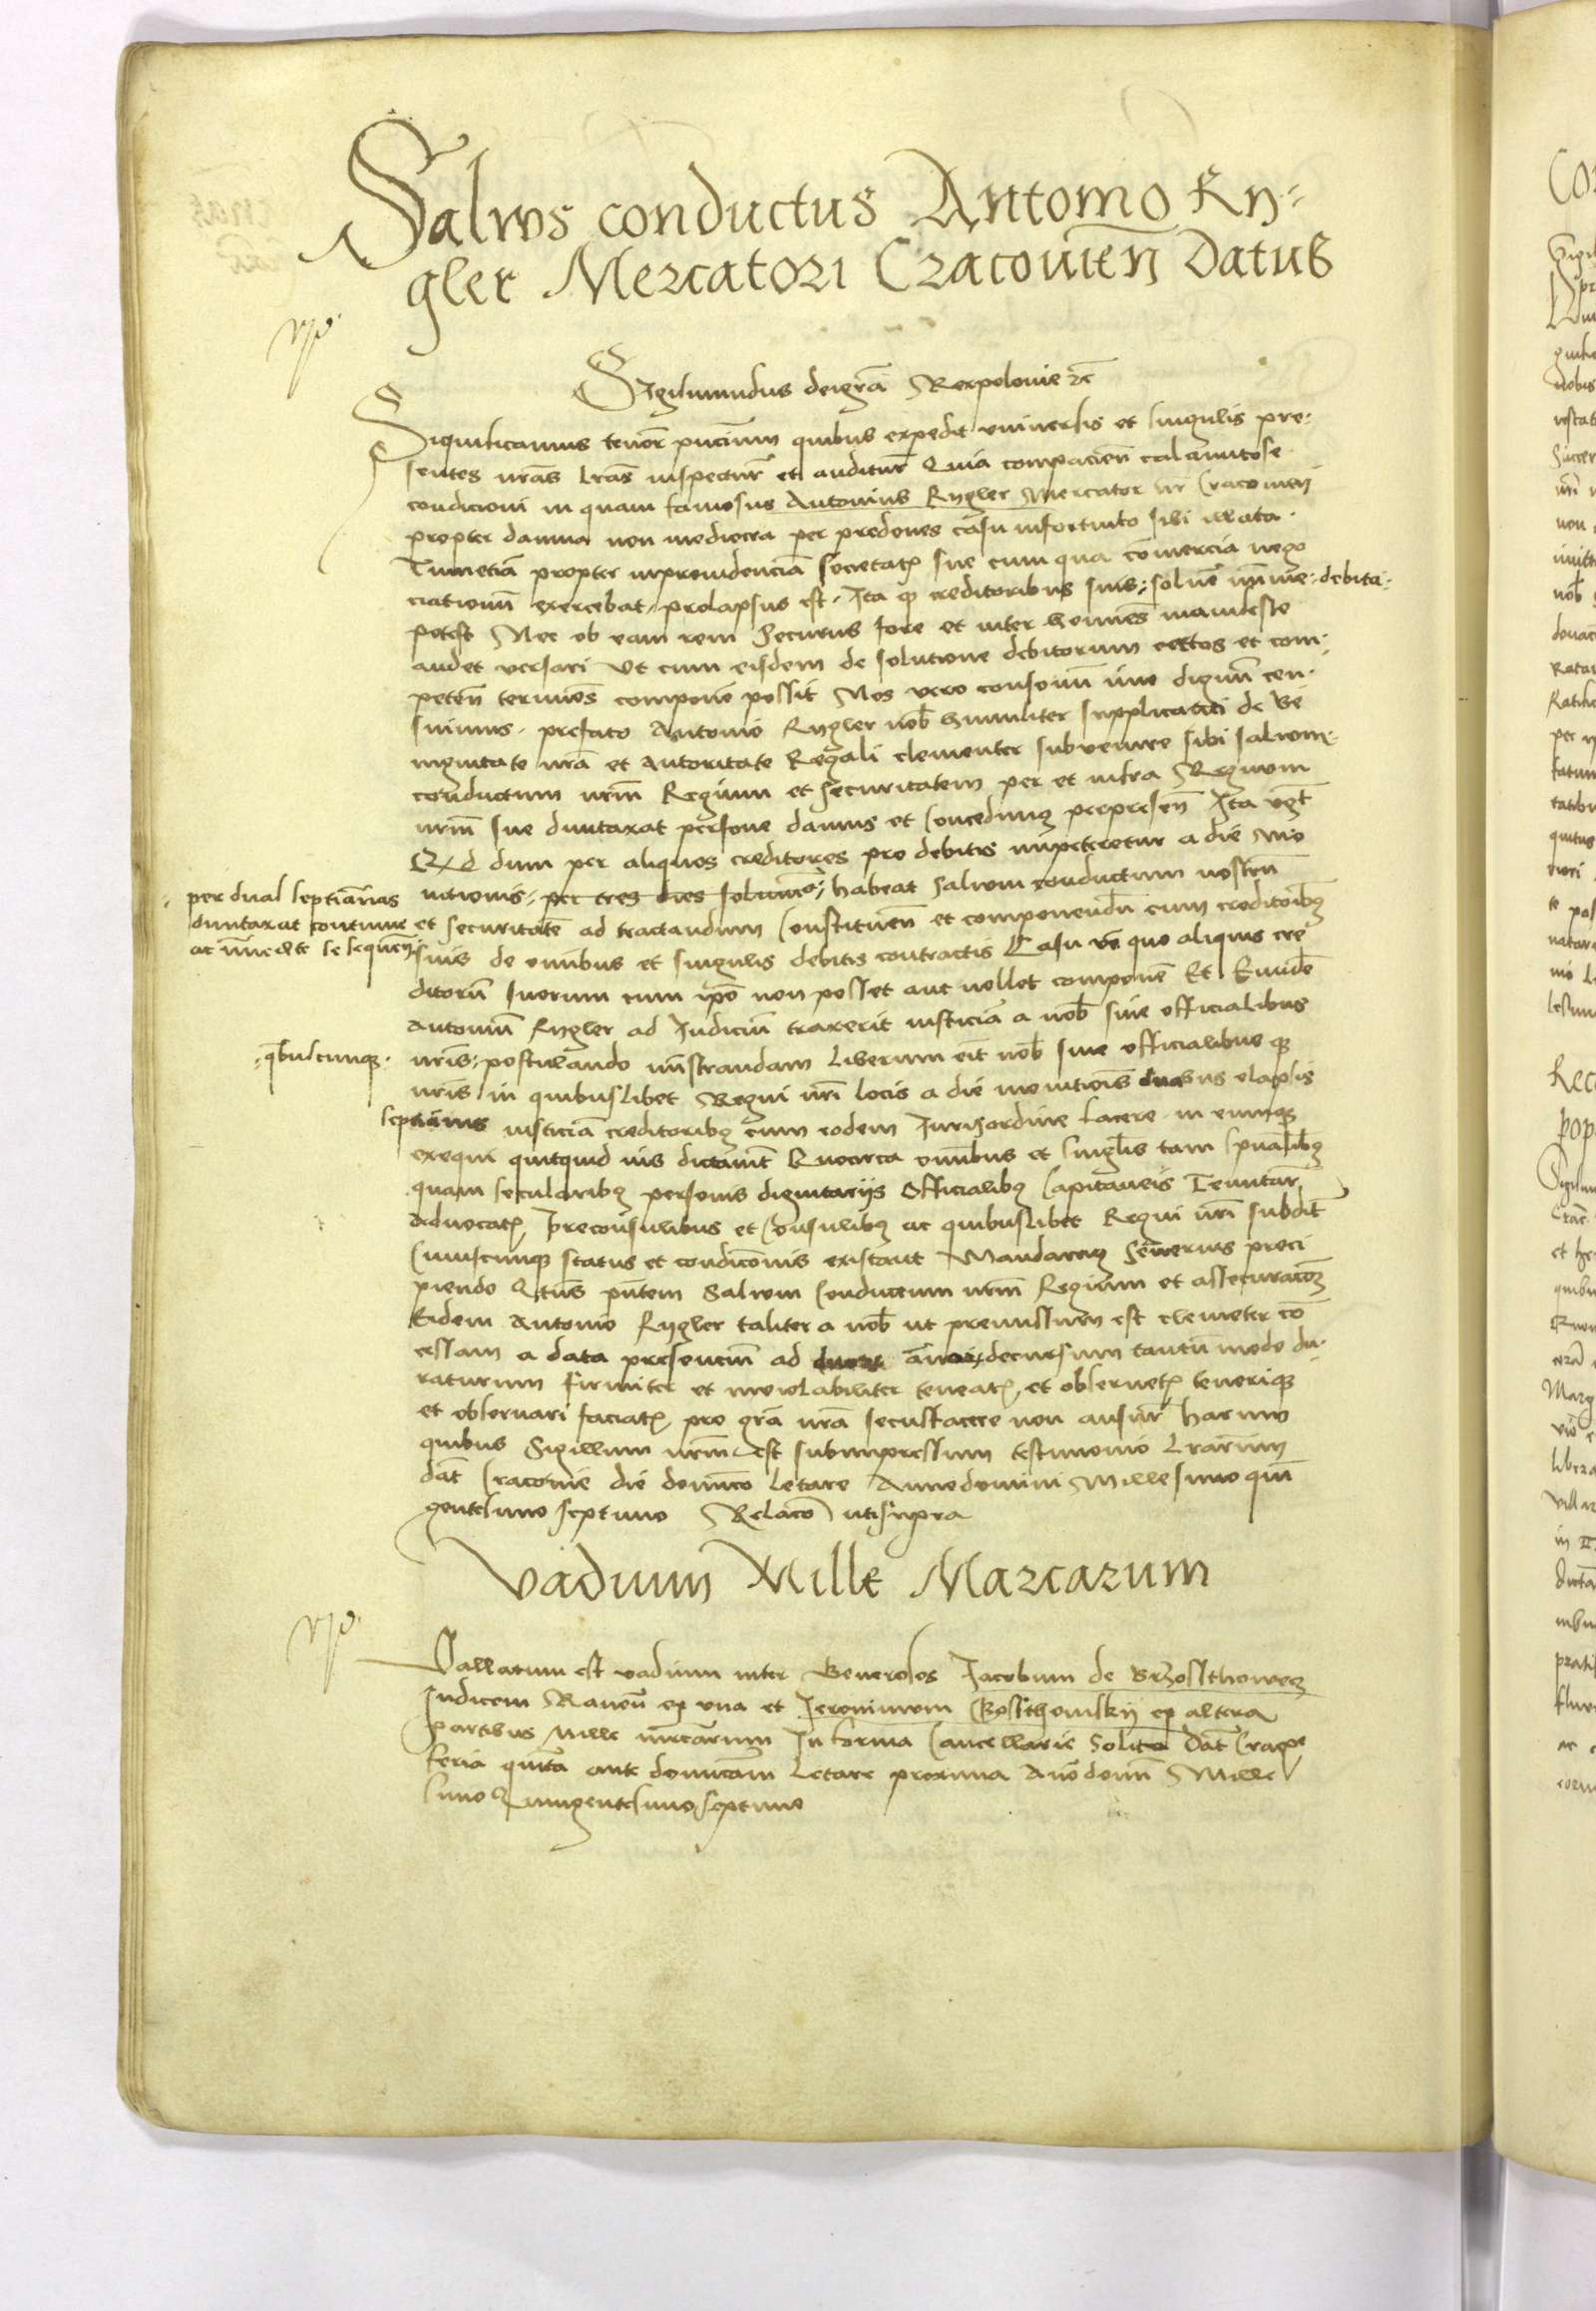 Salvos conductus Antonio Ry-
gler Mercatori Cracovien̄ Datus
Sigismundus dei gr̄a Rex polonie &c̄
Significamus tenor̄ pn̄cium quibus expedit universis et singulis pre-
sentes nr̄as lr̄as inspectur̄ et auditur̄ Quia compacien̄ calamitose
condicioni in quam famosus Antonius Rygler mercator nr̄ Cracovien̄
propter damna non mediocra per predones casu infortuito sibi illata
Tum etiā propter inprovidenciā societatꝫ sue cum qua cōmercia nego
ciationū exercebat, prolapsus est. Ita ꝙ creditoribus suis solue͞ mi͞me debita
potest Nec ob eam rem securus fore et inter homines manifeste
audet versari Ut cum eisdem de solutione debitorum certos et com-
peten̄ termīos componē possit Nos vero consonū imo dignū cen-
suimus prefato Antonio Rygler nob̄ humiliter supplicanti de be
nignitate nr̄a et autoritate Regali clementer subvenire sibi salvom
conductum nrm̄ Regium et securitatem per et infra Regnum
nrm̄ sue duntaxat persone damus et concedimꝰ per presen̄ Ita vꝫ
Qd dum per aliquos creditores pro debitis impeteretur a die mo
nitionis, per tres dies solum̄o, habeat salvom conductum nostrū
per duas septiānas
duntaxat continue
ac īmediate se sequen̄
et securitatē ad tractandum constituen̄ et componendū cum creditoribꝫ
suis de omnibus et singulis debitis contractis Casu vō quo aliquis cre
ditorū suorum cum ipō non posset aut nollet componē Et Eundē
Antoniū Rygler ad Iudiciū traxerit iusticiā a nob̄ sive officialibus
nrīs, postulando mīstrandam liberum erit nob̄ sive officialibus
q̄buscunqꝫ
nrīs in quibuslibet Regni nrī locis a die monitiōis duabus elapsis
septianis iusticiā creditoribꝫ cum eodem Iuris ordine facere in eumqꝫ
exequi quitquid ius dictaverit Quocirca omībus et singlis tam spūalibꝫ
quam secularibꝫ personis dignitarijs Officialibꝫ Capitaneis Tenutar̄
Advocatꝫ Preconsulibus et Consulibꝫ ac quibuslibet Regni nrī subdit̄
Cuiuscunqꝫ status et condic̄onis existant Mandamꝰ severius preci
piendo Qtūs pn̄tem Salvom Conductum nrm̄ Regium et assecurac̄oꝫ
Eidem Antonio Rygler taliter a nob̄ ut premissum est clementer cō
cessam a data presenciū ad anni decursum tantū modo du-
raturum firmiter et inviolabiliter teneatꝫ, et observetꝫ tenerique
et observari faciatꝫ pro gr̄a nr̄a secus facere non ausur̄ harum
quibus Sigillum nrm̄ est subimpressum testimonio lr̄arum
dat̄ Cracovie die dominico letare Anno domini Millesimo quin̄
gentesimo septimo Relac̄o ut supra
Vadium Mille Marcarum
Vallatum est vadium inter Generosos Jacobum de
Iudicem Raven̄ ex una et Jeronimum ex altera
partibus Mille mrcārum In forma Cancellarie Solita Dat̄ Crac̄
feria quinta ante dominicam Letare proxima Anno dom̄ Mille
simo Quingentesimo septimo